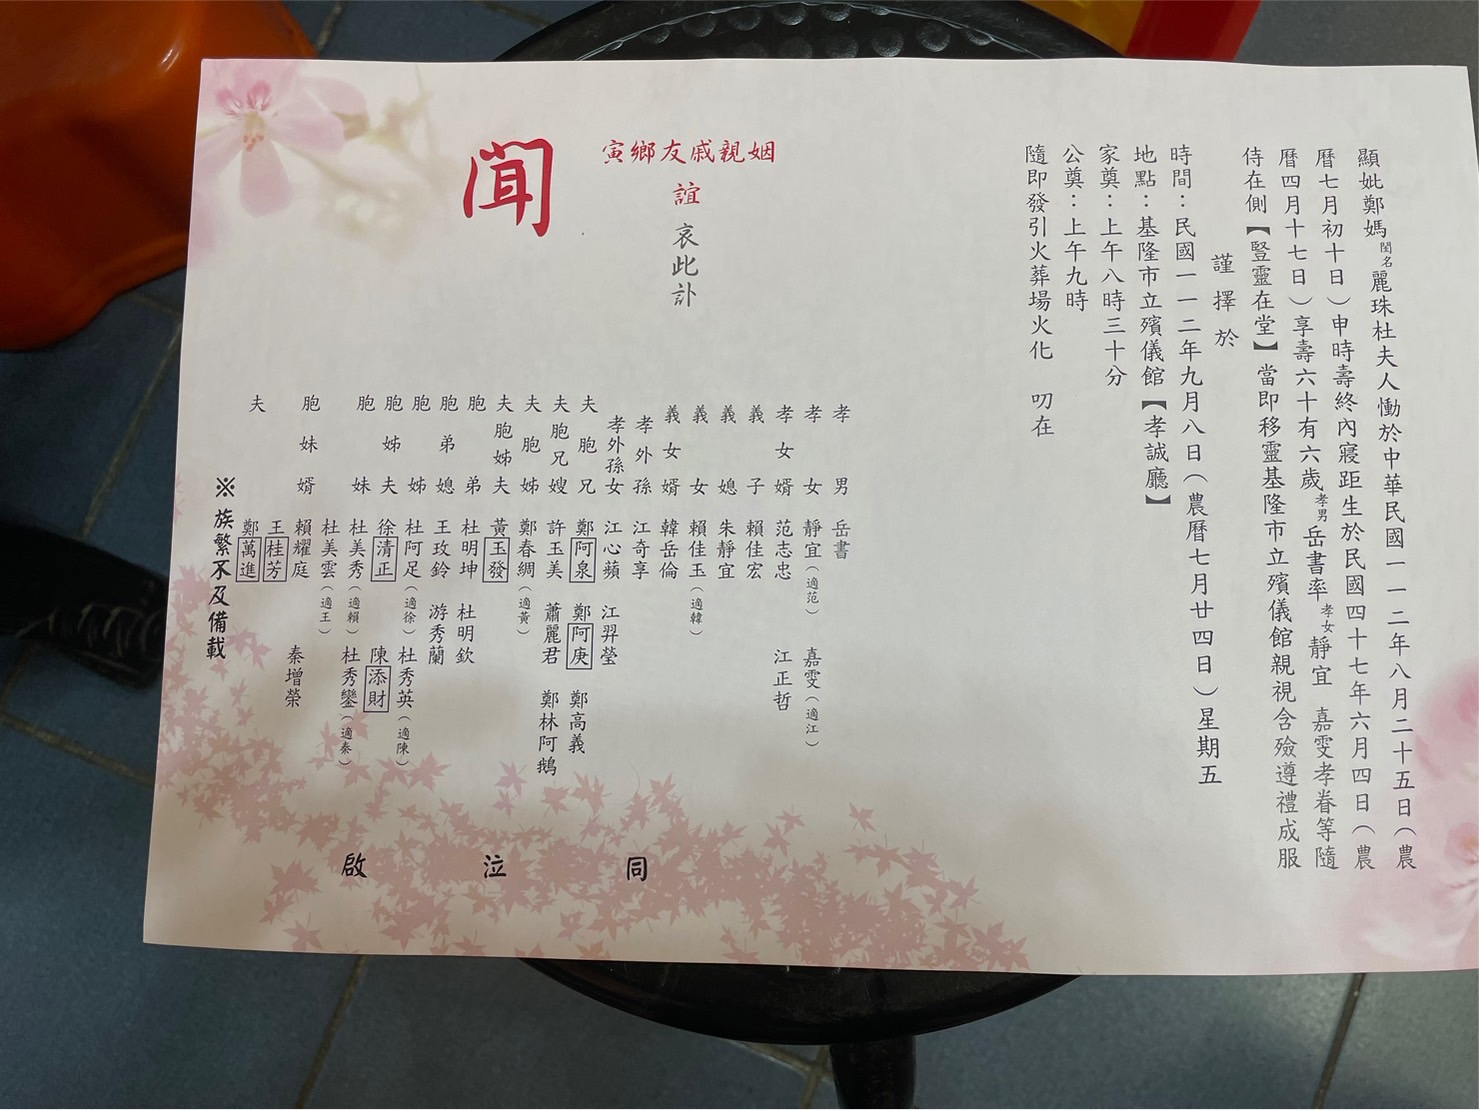 顯妣鄭媽閨名麗珠杜夫人慟於中華民國一一二年八月二十五日（農
曆七月初十日）申時壽終內寢距生於民國四十七年六月四日（農
曆四月十七日）享壽六十有六歲孝男岳書率孝女靜宜　嘉雯孝眷等隨
侍在側【豎靈在堂】當即移靈基隆市立殯儀館親視含殮遵禮成服
謹擇於
時間：民國一一二年九月八日（農曆七月廿四日）星期五
地點：基隆市立殯儀館【孝誠廳】
家奠：上午八時三十分
公奠：上午九時
隨即發引火葬場火化　叨在
姻親戚友鄉寅
誼 哀此訃
聞
孝男 岳書
孝女 靜宜（適范） 嘉雯（適江）
孝女婿 范志忠 江正哲
義子 賴佳宏
義媳 朱靜宜
義女 賴佳玉（適韓）
義女婿 韓岳倫
孝外孫 江奇享
孝外孫女 江心蘋 江羿瑩
夫胞兄 鄭阿泉 鄭阿庚 鄭高義
夫胞兄嫂 許玉美 蕭麗君 鄭林阿鵝
夫胞姊 鄭春綢（適黃）
夫胞姊夫 黃玉發
胞弟 杜明坤 杜明欽
胞弟媳 王玫鈴 游秀蘭
胞姊 杜阿足（適徐） 杜秀英（適陳）
胞姊夫 徐清正 陳添財
胞妹 杜美秀（適賴） 杜秀鑾（適秦）
杜美雲（適王）
胞妹婿 賴耀庭 秦增榮
王桂芳
夫 鄭萬進
※族繁不及備載
同泣啟